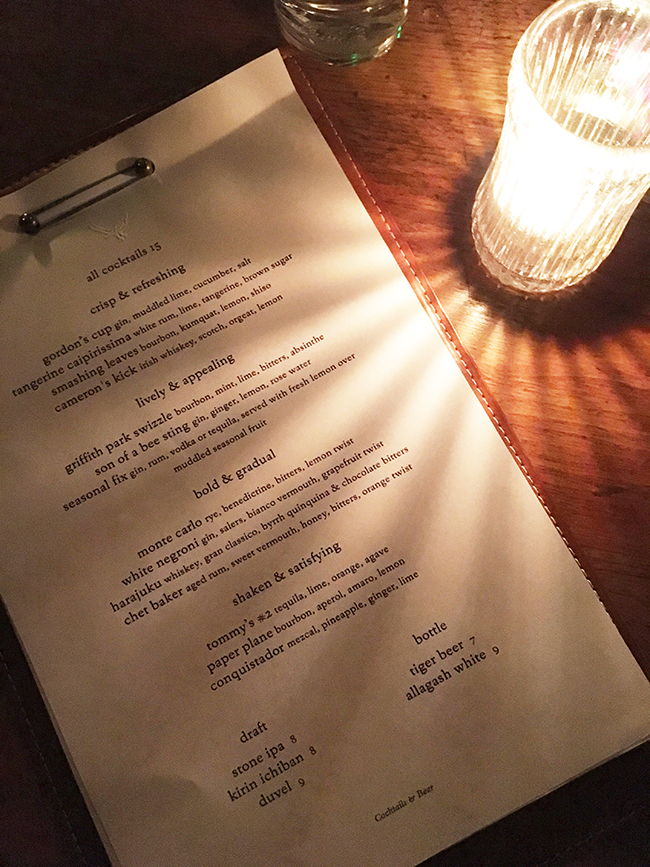 all cocktails 15
crisp & refreshing
gordon's cup gin, muddled lime, cucumber, salt
tangerine caipirissima white rum, lime, tangerine, brown sugar
smashing leaves bourbon, kumquar, lemon, shiso
cameron's kick irish whiskey, scotch, orgeat, lemon
lively & appealing
griffith park swizzle bourbon, mint, lime, bitters, absinthe
son of a bee sting gin, ginger, lemon, rose water
seasonal fix gin, rum, vodka or tequila, served with fresh lemon over
muddled seasonal fruit
bold & gradual
monte carlo rye, benedictine, bitters, lemon twist
white negroni gin, salers, bianco vermouth, grapefruit twist
harajuku whiskey, gran classico, byrrh quinquina & chocolate bitters
chet baker aged rum, sweet vermouth, honey, bitters, orange twist
shaken & satisfying
tommy's #2 tequila, lime, orange, agave
paper plane bourbon, aperol, amaro, lemon
conquistador mezcal, pineapple, ginger, lime
bottle
tiger beer 7
allagash white 9
draft
stone ipa 8
kirin ichiban 8
duvel 9
Cocktails & Beer